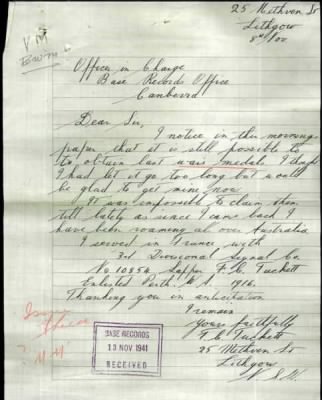 25 Methven St
Lithgow
Officer in Charge
Base Records Office
Canberra
Dear Sir,
I notice in this mornings
paper that it is still possible to
try obtain last wars medals. I thought
I had let it go too long but would
be glad to get mine now
It was impossible to claim them
till lately as since I came back I
have been roaming all over Australia
I served in France with
3rd Divisional Signal Co.
No 10854 Sapper F. C. Tuckett
Enlisted Perth W. A. 1916.
Thanking you in anticipation
I remain
Yours faithfully
F C Tuckett
25 Methven St
Lithgow
N. S. W.
BASE RECORDS
13 NOV 1941
RECEIVED